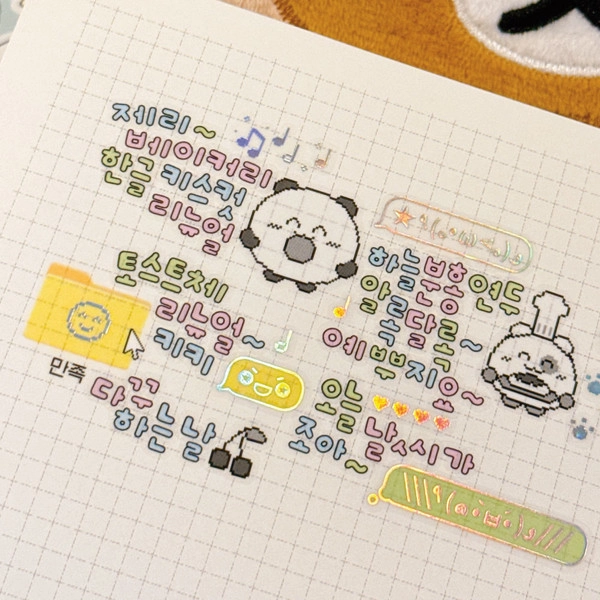 제리~
베이커리
한글 키스컷
리뉴얼
토스트체
리뉴얼~
키키
만족
다꾸
하는 날
하늘 부홍 연두
알록달록~
예쁘지요~
오늘 날씨가
조아~